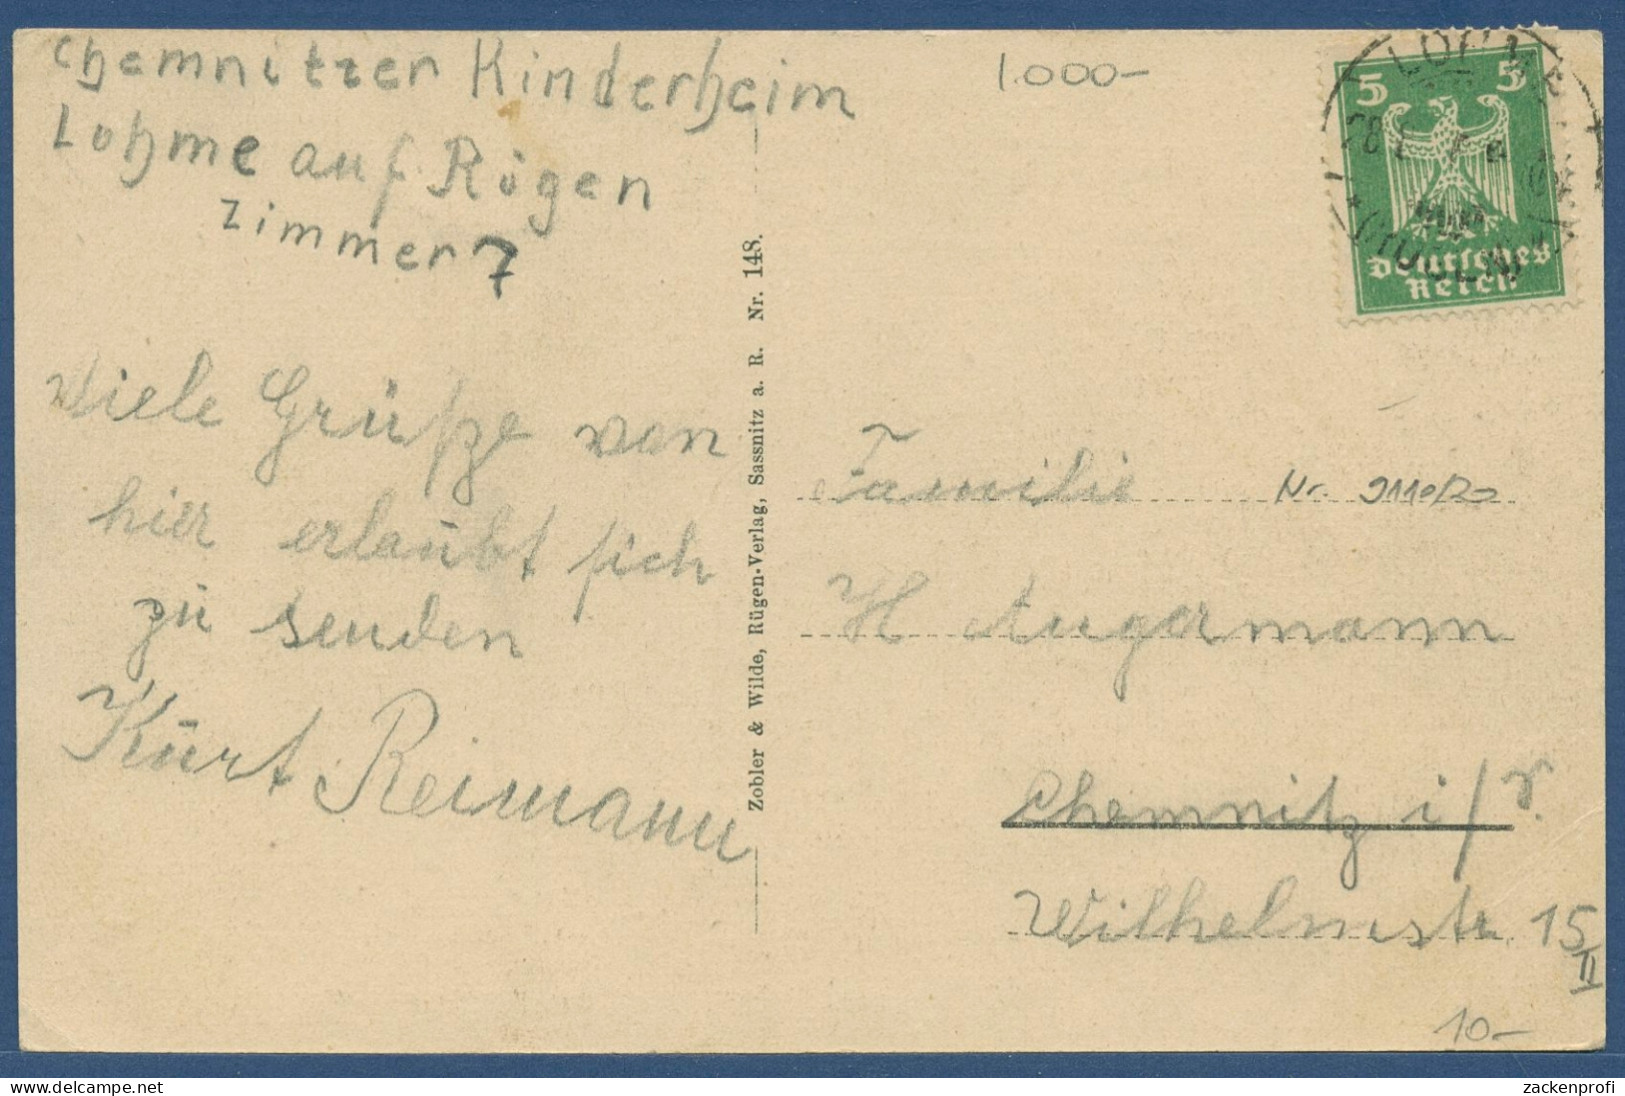 Chemnitzer Kinderheim
Lohme auf Rügen
Zimmer 7
Viele Grüße von
hier erlaubt sich
zu senden
Kurt Reimann
Zobler & Wilde, Rügen-Verlag, Sassnitz a. R. Nr. 148.
1.000-
5 5
Deutsches
Reich
LOHME
(RÜGEN)
Familie
Nr.
H Augermann
Chemnitz i/
Wilhelmstr. 15
II
10-
zackenprofi